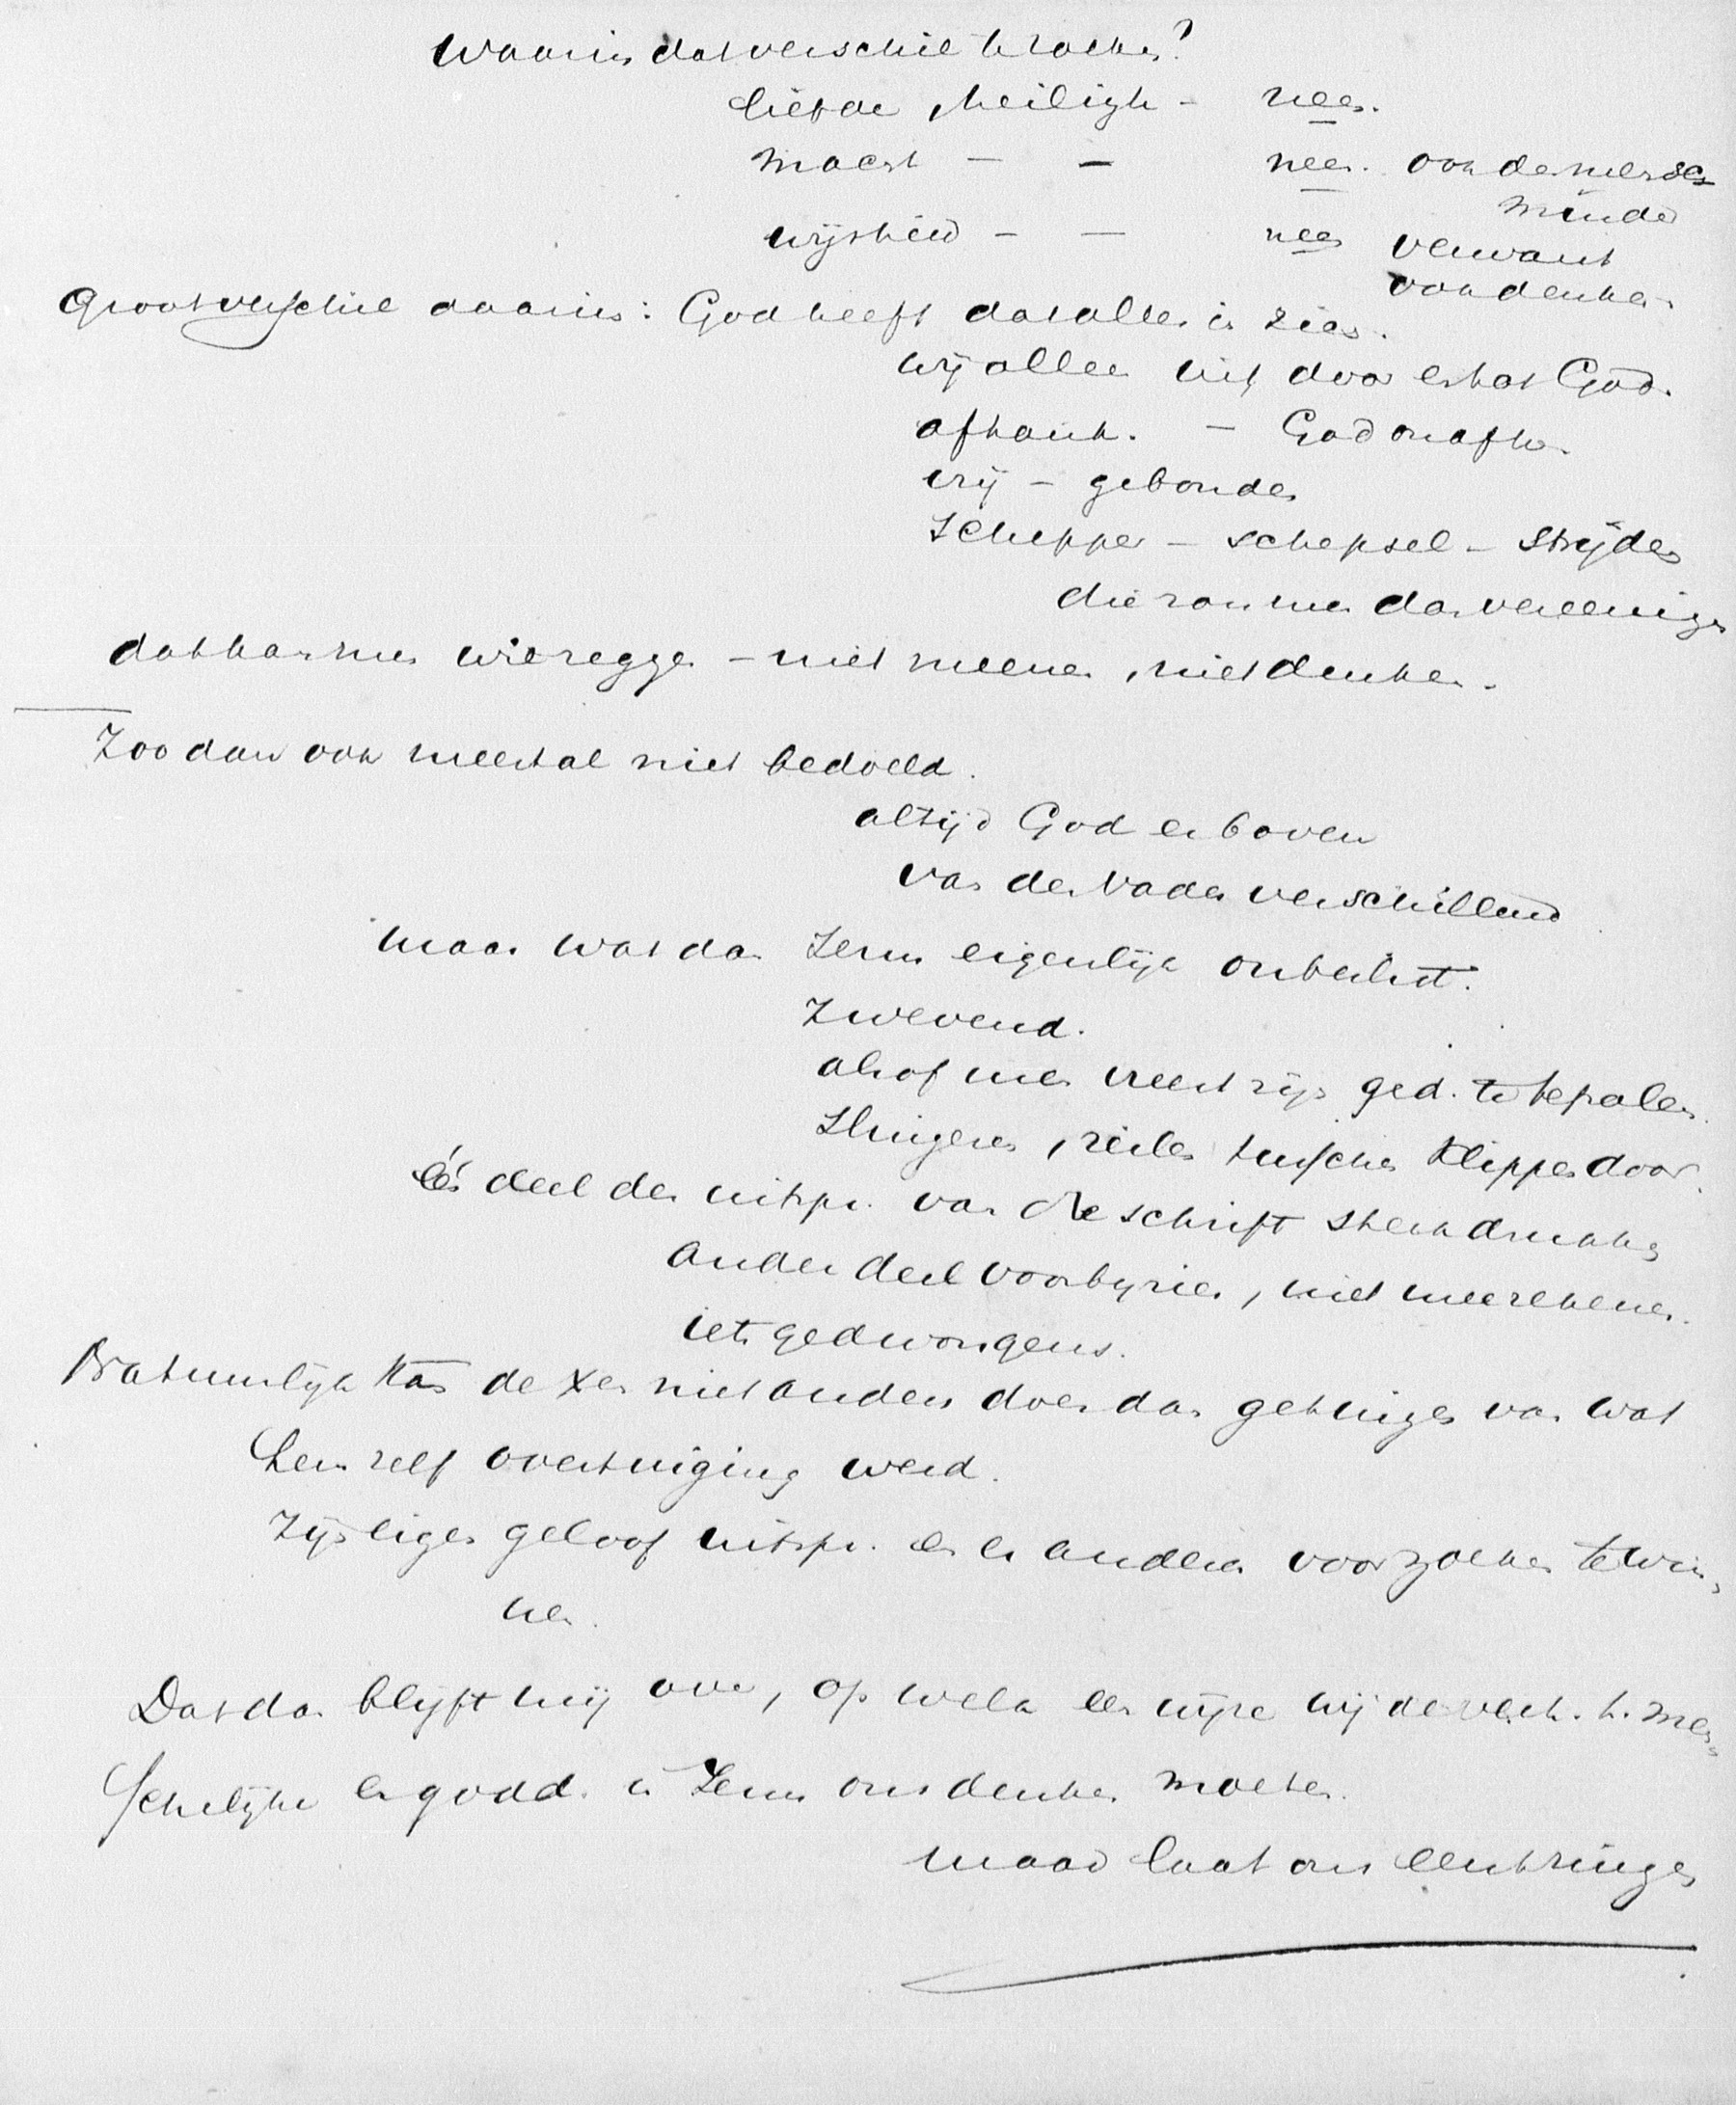 Waarin dat verschil te zoeken?
liefde, heiligh - neen.
macht - - neen. ook de mensch
minder
wijsheid - - neen verwant
ook denken.
Groot verschil daarin: God heeft dat alles in zich.
wij alleen uit, door en tot God.
afhank. - God onafh.
vrij - gebonden
Schepper - schepsel - strijden
die zou men dan vereenigen
dat kan men wel zeggen - niet meenen, niet denken.
Zoo dan ook meestal niet bedoeld.
altijd God er boven
van den Vader verschillend
maar wat dan Jezus eigenlijk onbeslist.
Zwevend.
alsof men vreest zijn ged. te bepalen.
Slingeren, zeilen tusschen klippen door.
Eén deel der uitspr. van de schrift sterk drukken
ander deel voorbijzien, niet meerekenen.
iets gedwongens.
Natuurlijk kan de Xen niet anders doen dan getuigen van wat
hem zelf overtuiging werd.
Zijn eigen geloof uitspr. en er anderen voor zoeken te win
nen.
Dat dan blijft mij over, op welk een wijze wij de verh. t. men
schelijke en godd. in Jezus ons denken moeten.
maar laat ons eerst zingen